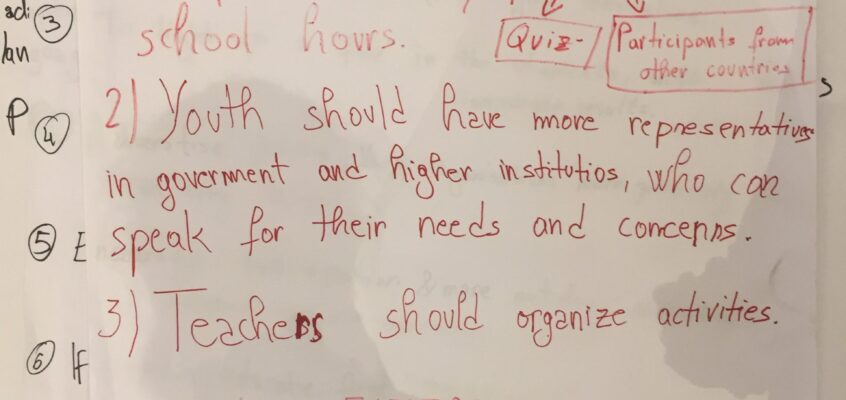 adi ③
lan
school hours.
Quiz-
Participants from
other countries
P ④
2) Youth should have more representatives
in goverment and higher institutios, who can
speak for their needs and concerns.
⑤ E
3) Teachers should organize activities.
⑥ If
s